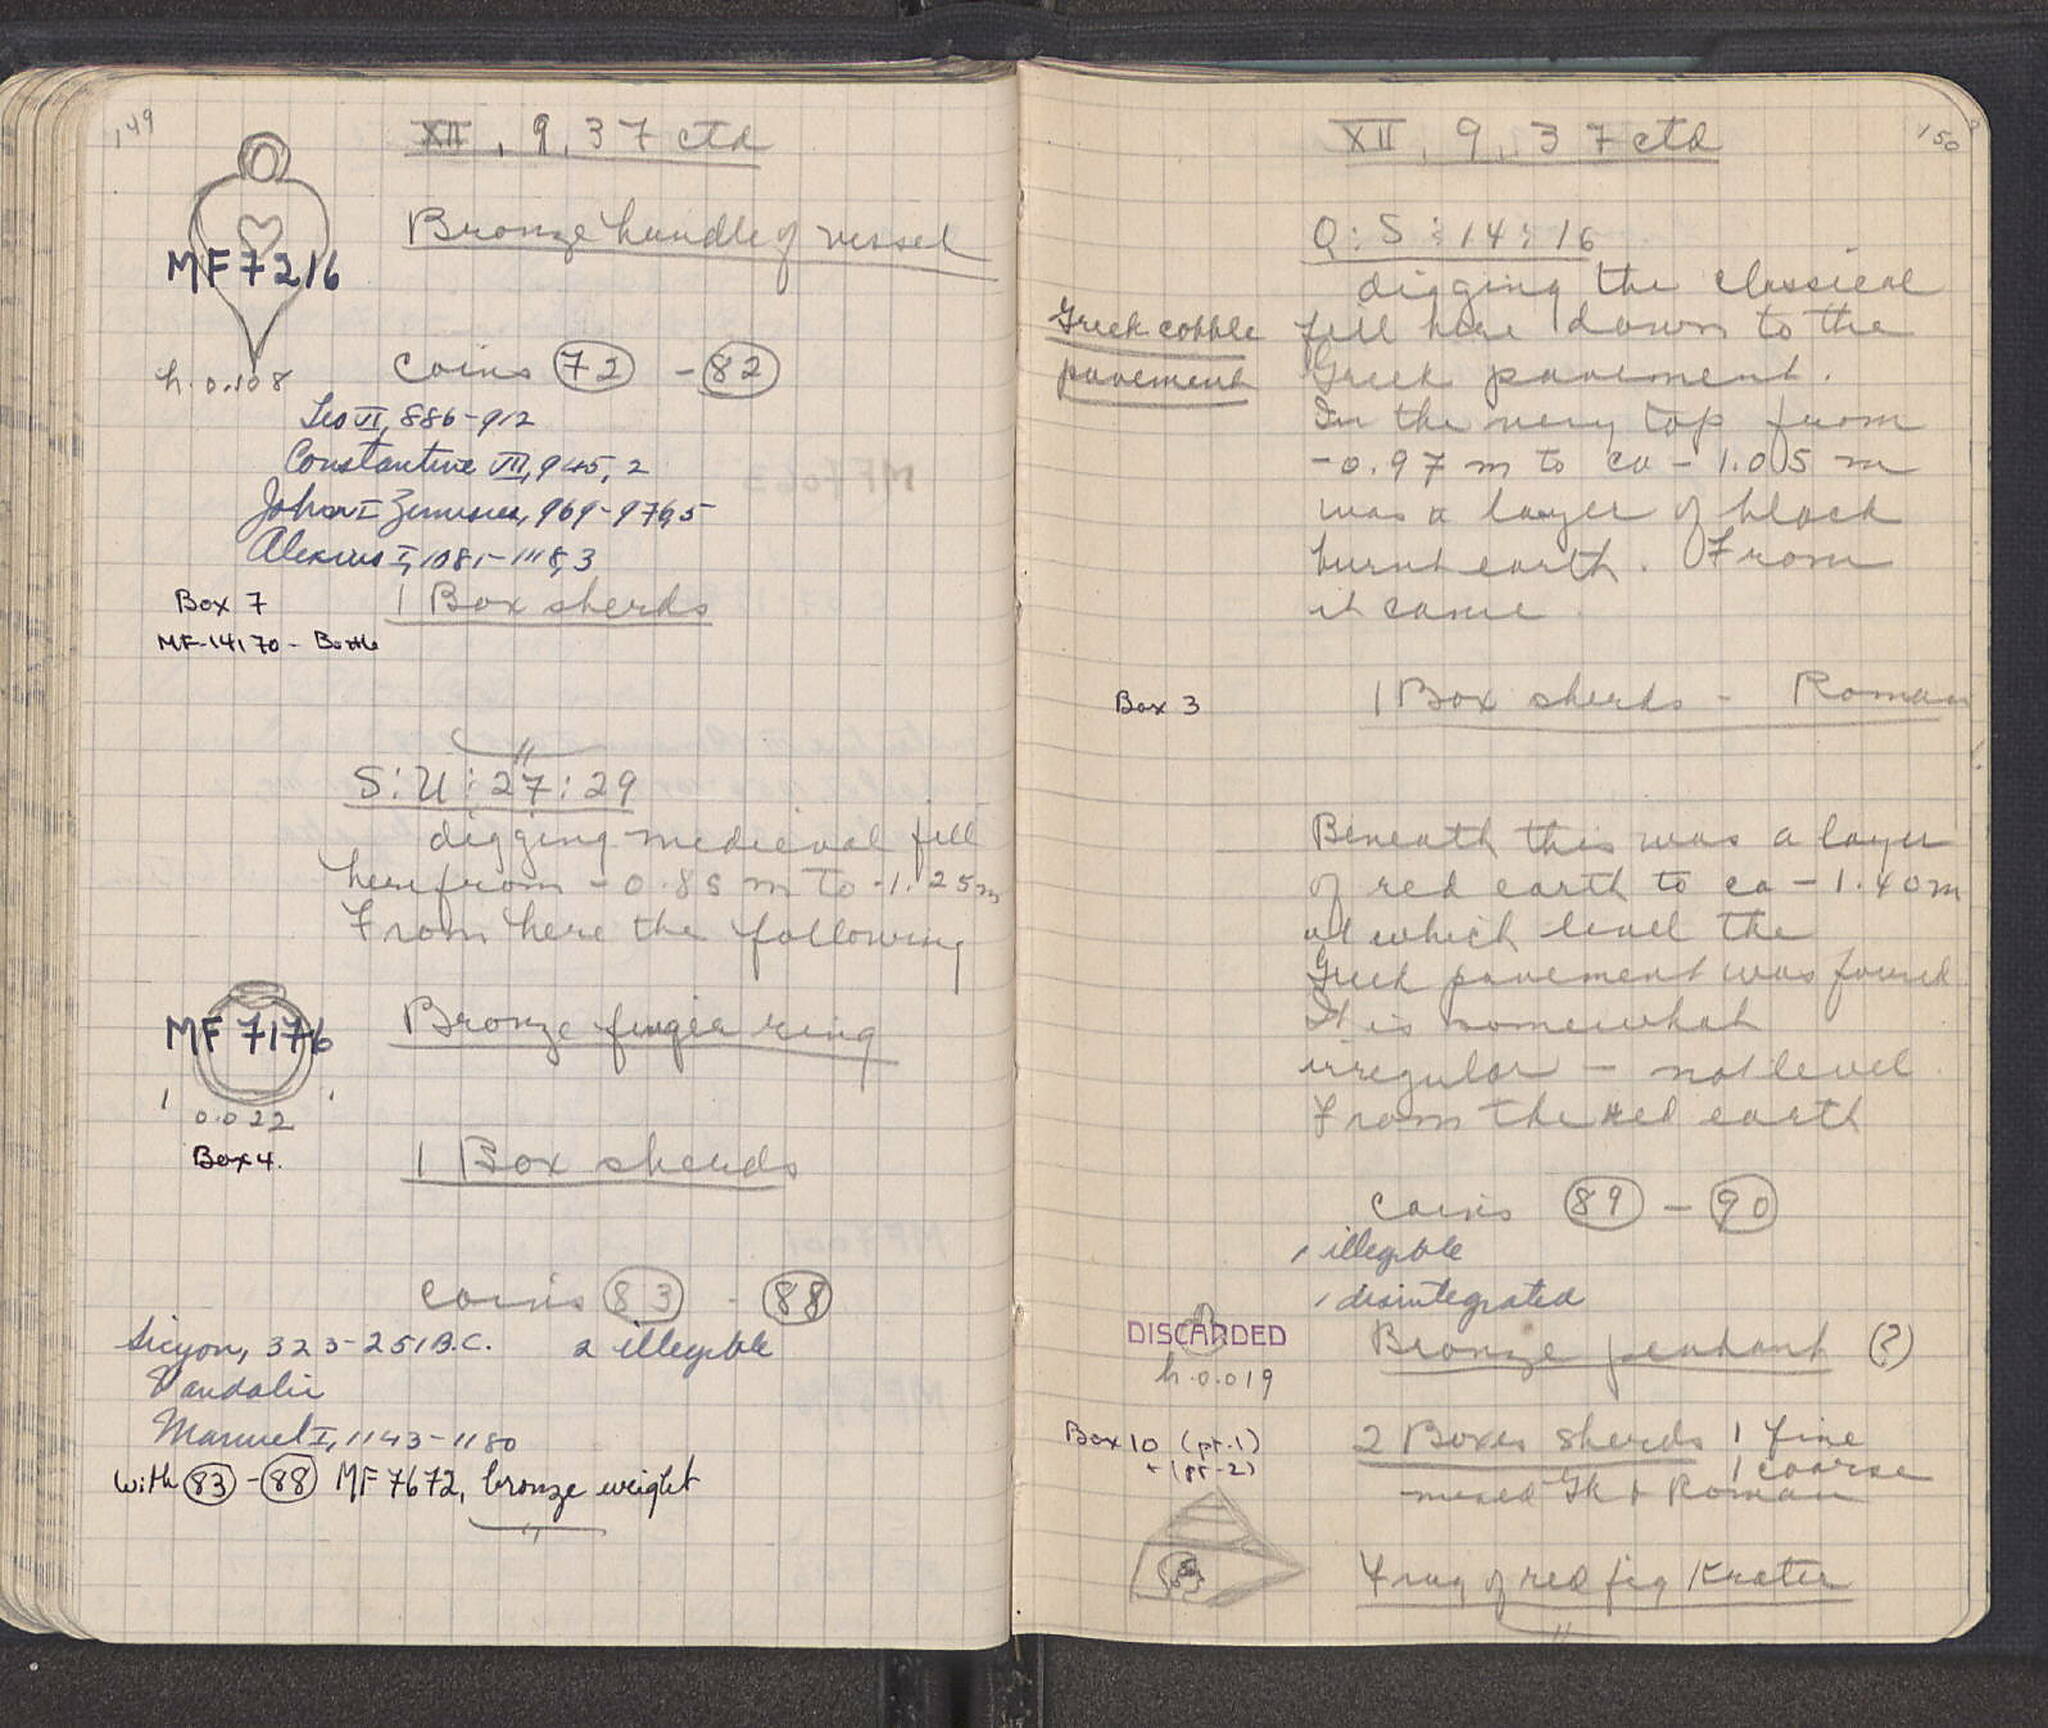 149
XII, 9, 37 ctd
Bronze handle of vessel
MF 7216
h. 0.108
coins 72 - 82
Leo VI, 886-912
Constantine VII, 945, 2
John I Zimisces, 969-976, 5
Alexius I, 1081-1118, 3
Box 7
1 Box sherds
MF-14170 - Bottle
S:U:27:29
digging medieval fill
here from -0.85 m to -1.25 m
From here the following
MF 7176
Bronze finger ring
0.022
Box 4.
1 Box sherds
coins 83 - 88
Sicyon, 323-251 B.C. 2 illegible
Vandalic
Manuel I, 1143-1180
with 83 - 88 MF 7672, bronze weight
XII, 9, 37 ctd
150
Q:S:14:16
digging the classical
Greek cobble
pavement
fill here down to the
Greek pavement.
In the very top from
-0.97 m to ca -1.05 m
was a layer of black
burnt earth. From
it came
Box 3
1 Box sherds - Roman
Beneath this was a layer
of red earth to ca -1.40 m
at which level the
Greek pavement was found
It is somewhat
irregular - not level
From the red earth
coins 89 - 90
1 illegible
1 disintegrated
DISCARDED
h. 0.019
Bronze pendant (?)
Box 10 (pt. 1)
+ (pt-2)
2 Boxes sherds 1 fine
1 coarse
mixed Gk + Roman
Frag of red fig Krater